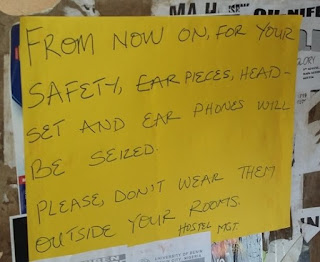 FROM NOW ON, FOR YOUR
SAFETY, EARPIECES, HEAD-
SET AND EAR PHONES WILL
BE SEIZED.
PLEASE, DON'T WEAR THEM
OUTSIDE YOUR ROOMS.
HOSTEL MGT.
UNIVERSITY OF BENIN